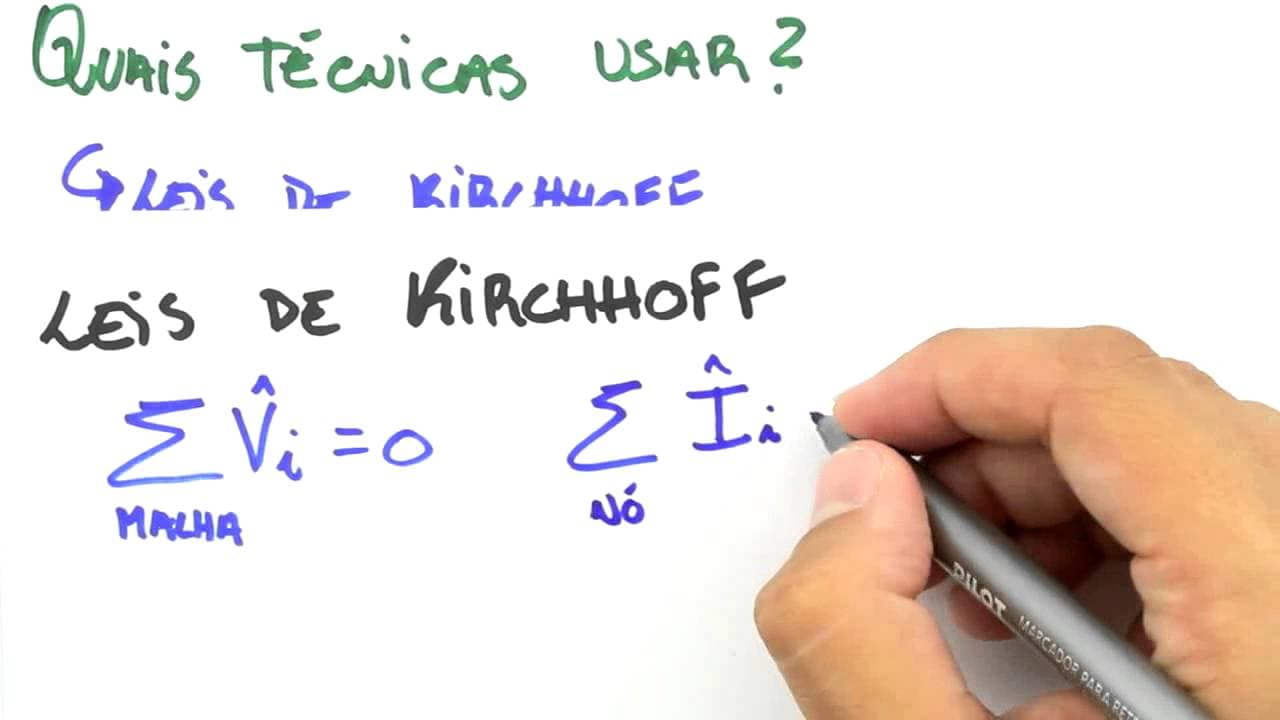 QUAIS TÉCNICAS USAR?
↳ LEIS DE KIRCHHOFF
LEIS DE KIRCHHOFF
∑ V̂i = 0 ∑ Îi
MALHA NÓ
PILOT MARCADOR PARA RE